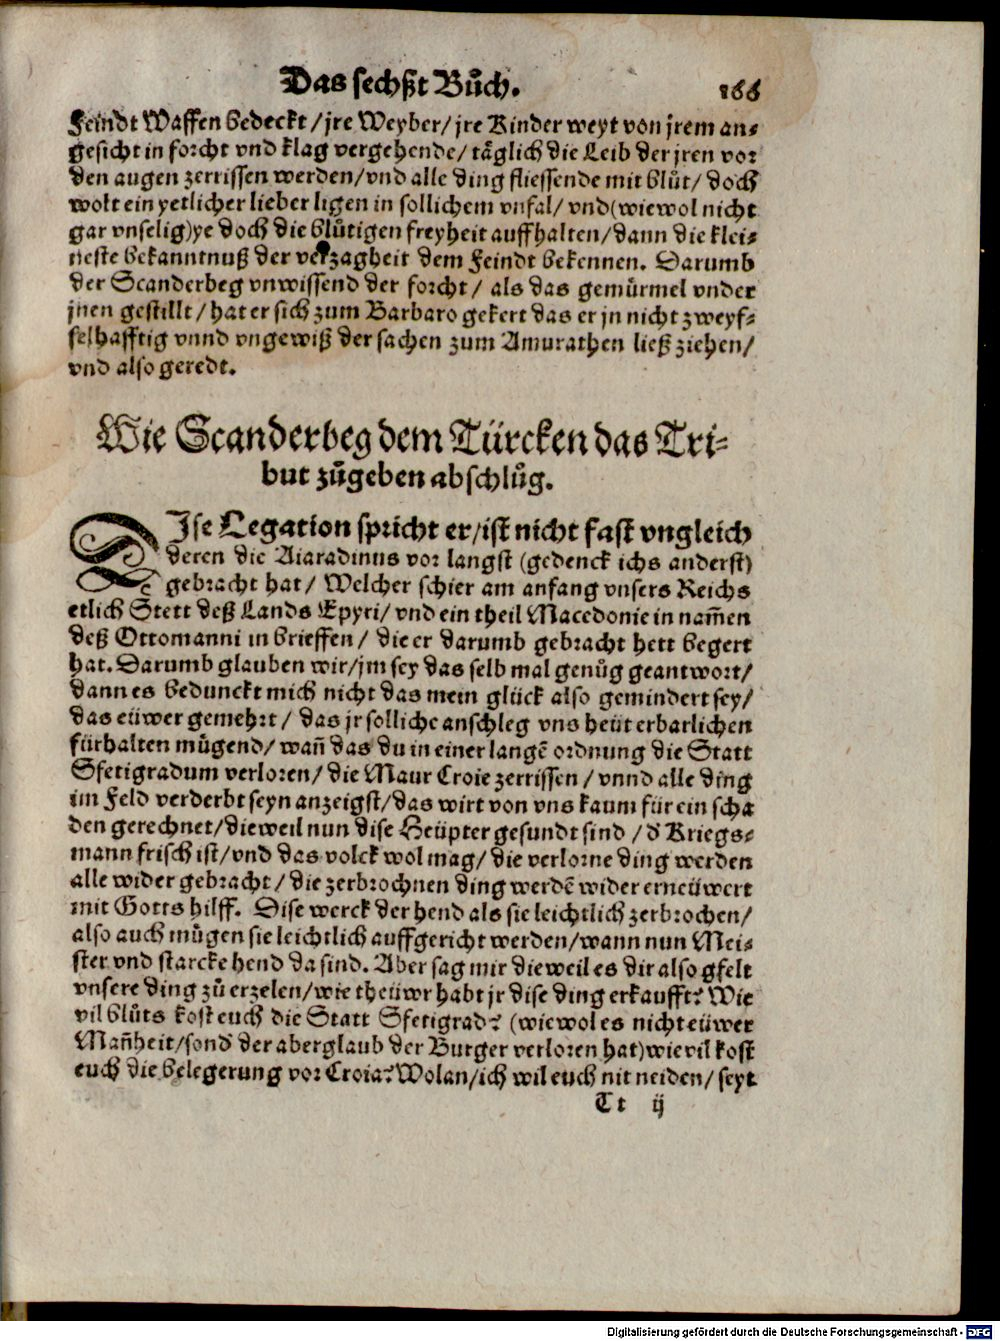 Das sechßt Bůch. 166
Feindt Waffen bedeckt / jre Weyber / jre Kinder weyt von jrem an⸗
gesicht in forcht vnd klag vergehende / täglich die Leib der jren vor
den augen zerrissen werden / vnd alle ding fliessende mit blůt / doch
wolt ein yetlicher lieber ligen in sollichem vnfal / vnd (wiewol nicht
gar vnselig) ye doch die blůtigen freyheit auffhalten / dann die klei⸗
neste bekanntnuß der verzagheit dem Feindt bekennen. Darumb
der Scanderbeg vnwissend der forcht / als das gemürmel vnder
jnen gestillt / hat er sich zum Barbaro gekert das er jn nicht zweyf⸗
felhafftig vnnd vngewiß der sachen zum Amurathen ließ ziehen /
vnd also geredt.
Wie Scanderbeg dem Türcken das Tri⸗
but zůgeben abschlůg.
DIse Legation spricht er / ist nicht fast vngleich
deren die Aiaradinus vor langst (gedenck ichs anderst)
gebracht hat / Welcher schier am anfang vnsers Reichs
etlich Stett deß Lands Epyri / vnd ein theil Macedonie in nam̃en
deß Ottomanni in brieffen / die er darumb gebracht hett begert
hat. Darumb glauben wir / jm sey das selb mal genůg geantwort /
dann es bedunckt mich nicht das mein glück also gemindert sey /
das eüwer gemehrt / das jr solliche anschleg vns heüt erbarlichen
fürhalten mügend / wañ das du in einer langẽ ordnung die Statt
Sfetigradum verloren / die Maur Croie zerrissen / vnnd alle ding
im Feld verderbt seyn anzeigst / das wirt von vns kaum für ein scha
den gerechnet / dieweil nun dise Heüpter gesundt sind / d̕ Kriegs⸗
mann frisch ist / vnd das volck wol mag / die verlorne ding werden
alle wider gebracht / die zerbrochnen ding werdẽ wider erneüwert
mit Gotts hilff. Dise werck der hend als sie leichtlich zerbrochen /
also auch mügen sie leichtlich auffgericht werden / wann nun Mei⸗
ster vnd starcke hend da sind. Aber sag mir dieweil es dir also gfelt
vnsere ding zů erzelen / wie theüwr habt jr dise ding erkaufft? Wie
vil blůts kost euch die Statt Sfetigrad? (wiewol es nicht eüwer
Mañheit / sond̕ der aberglaub der Burger verloren hat) wie vil kost
euch die belegerung vor Croia? Wolan / ich wil euch nit neiden / seyt
Tt ij
Digitalisierung gefördert durch die Deutsche Forschungsgemeinschaft - DFG